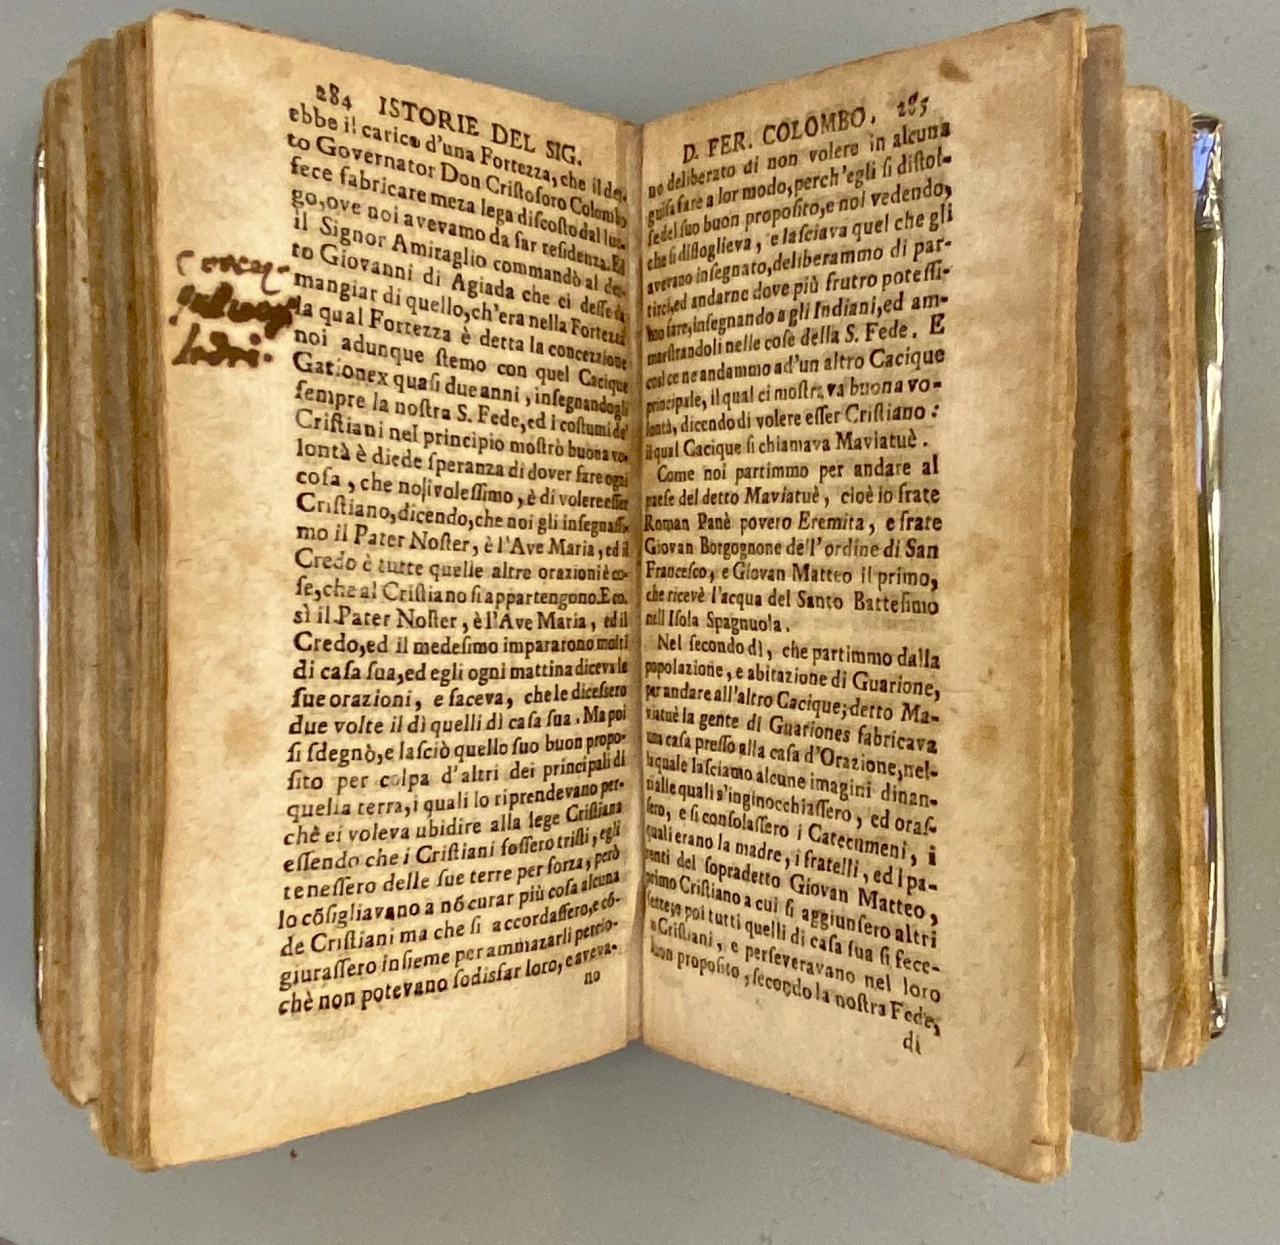 284 ISTORIE DEL SIG.
ebbe il carico d'una Fortezza, che il det-
to Governator Don Cristoforo Colombo
fece fabricare meza lega discosto dal luo-
go, ove noi avevamo da far residenza. Ed
il Signor Amiraglio commandò al det-
to Giovanni di Agiada che ci desse da
mangiar di quello, ch'era nella Fortezza
la qual Fortezza è detta la concezzione
noi adunque stemo con quel Cacique
Gationex quasi due anni, insegnandogli
sempre la nostra S. Fede, ed i costumi de'
Cristiani nel principio mostrò buona vo-
lontà è diede speranza di dover fare ogni
cosa, che noi volessimo, è di volere esser
Cristiano, dicendo, che noi gli insegnassi-
mo il Pater Noster, è l'Ave Maria, ed il
Credo è tutte quelle altre orazioni è co-
se, che al Cristiano si appartengono. E co-
sì il Pater Noster, è l'Ave Maria, ed il
Credo, ed il medesimo impararono molti
di casa sua, ed egli ogni mattina diceva le
sue orazioni, e faceva, che le dicessero
due volte il dì quelli dì casa sua. Ma poi
si sdegnò, e lasciò quello suo buon propo-
sito per colpa d'altri dei principali di
quella terra, i quali lo riprendevano per-
chè ei voleva ubidire alla lege Cristiana
essendo che i Cristiani fossero tristi, egli
tenessero delle sue terre per forza, però
lo cõsigliavano à nõ curar più cosa alcuna
de Cristiani ma che si accordassero, e cõ-
giurassero insieme per ammazarli percio-
chè non potevano sodisfar loro, e aveva-
no
ladri.
D. FER. COLOMBO. 285
no deliberato di non volere in alcuna
guisa fare a lor modo, perch'egli si distol-
se del suo buon proposito, e noi vedendo,
che si distoglieva, e lasciava quel che gli
averano insegnato, deliberammo di par-
tirci, ed andarne dove più frutro potessi-
mo fare, insegnando a gli Indiani, ed am-
maestrandoli nelle cose della S. Fede. E
così ce ne andammo ad'un altro Cacique
principale, il qual ci mostrava buona vo-
lontà, dicendo di volere esser Cristiano:
il qual Cacique si chiamava Maviatuè.
Come noi partimmo per andare al
paese del detto Maviatuè, cioè io frate
Roman Panè povero Eremita, e frate
Giovan Borgognone de'l'ordine di San
Francesco, e Giovan Matteo il primo,
che ricevè l'acqua del Santo Battesimo
nell Isola Spagnuola.
Nel secondo dì, che partimmo dalla
popolazione, e abitazione di Guarione,
per andare all'altro Cacique; detto Ma-
viatuè la gente di Guariones fabricava
una casa presso alla casa d'Orazione, nel-
la quale lasciamo alcune imagini dinan-
zi alle quali s'inginocchiassero, ed oras-
sero, e si consolassero i Catecumeni, i
quali erano la madre, i fratelli, ed I pa-
renti del sopradetto Giovan Matteo,
primo Cristiano a cui si aggiunsero altri
sette, e poi tutti quelli di casa sua si fece-
ro Cristiani, e perseveravano nel loro
buon proposito, secondo la nostra Fede,
di